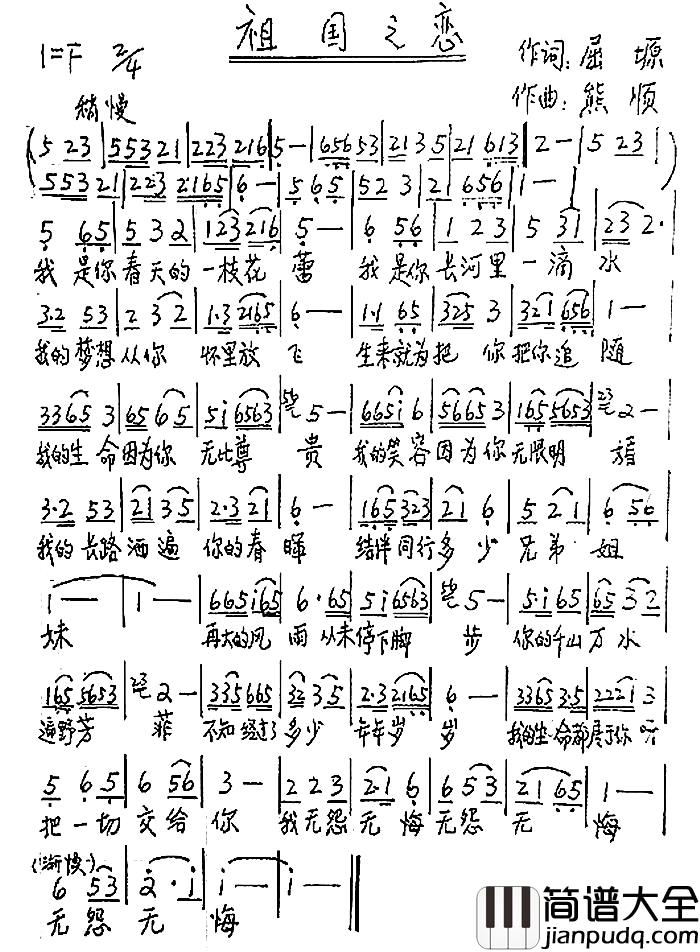 祖国之恋
1=F 2/4
作词：屈塬
作曲：熊顺
稍慢
(5 23 | 553 21 | 223 216 | 5 — | 656 53 | 213 5 | 21 613 | 2 — | 5 23 |
553 21 | 223 2165 | 6 — | 5 6 5 | 52 3 | 21 656 | 1 — | )
5 65 | 5 3 2 | 123 216 | 5 — | 6 56 | 1 2 3 | 5 31 | 23 2· |
我 是你 春天的 一枝花 蕾 我 是你 长河里 一滴 水
3·2 53 | 2 3 2 | 1·3 2165 | 6 — | 1·1 65 | 325 3 | 321 656 | 1 — |
我的梦想 从你 怀里放 飞 生来就为把 你把你追 随
3365 3 | 65 6 5 | 5i 6563 | 5 — | 665i 6 | 5665 3 | 165 5653 | 2 — |
我的生 命因为你 无比尊 贵 我的笑 容因为你无限明 媚
3·2 53 | 21 35 | 2·3 21 | 6 — | 165 323 | 21 6 | 5 2 1 | 6 56 |
我的 长路 洒遍 你的春 晖 结伴同行多 少 兄弟 姐
i — | i — | 665i65 | 6·65 | 5i 6563 | 5 — | 5·i 65 | 65 3 2 |
妹 再大的风 雨 从未停下脚 步 你的千山万 水
165 5653 | 2 — | 335 665 | 32 3 5 | 2·3 2165 | 6 — | 3365 3·5 | 2221 3 |
遍野芳 菲 不知经过了多少 年年岁 岁 我的生命都属于你 呀
5 6 5 | 6 56 | 3 — | 2 2 3 | 2·1 6 | 6 5 3 | 21 65 | 1 — |
把一切 交给 你 我无怨无 悔 无怨 无 悔
(渐慢)
6 53 | 2·i | i — | i — ‖
无 怨 无 悔
简谱大全
jianpudq.com